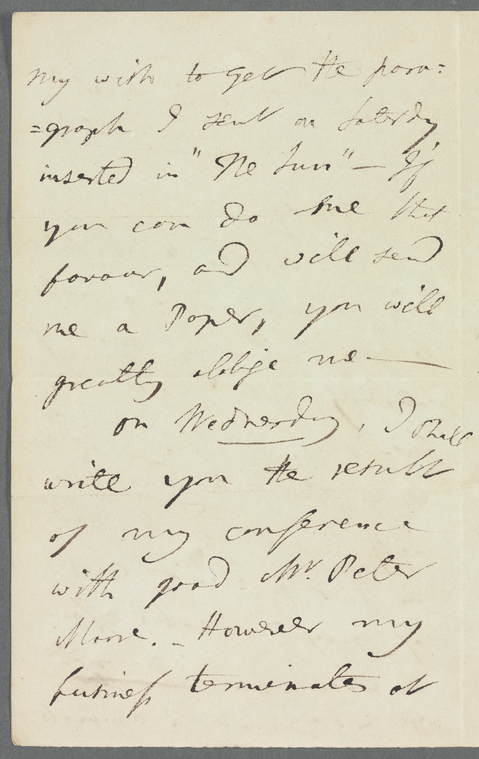 my wish to get the para=
=graph I sent on Saterday
inserted in "The Sun" — If
you can do me that
favour, and will send
me a Paper, you will
greatly oblige me —
on Wednesday, I shall
write you the result
of my conference
with good Mr. Peter
Moore. — However my
business terminates at